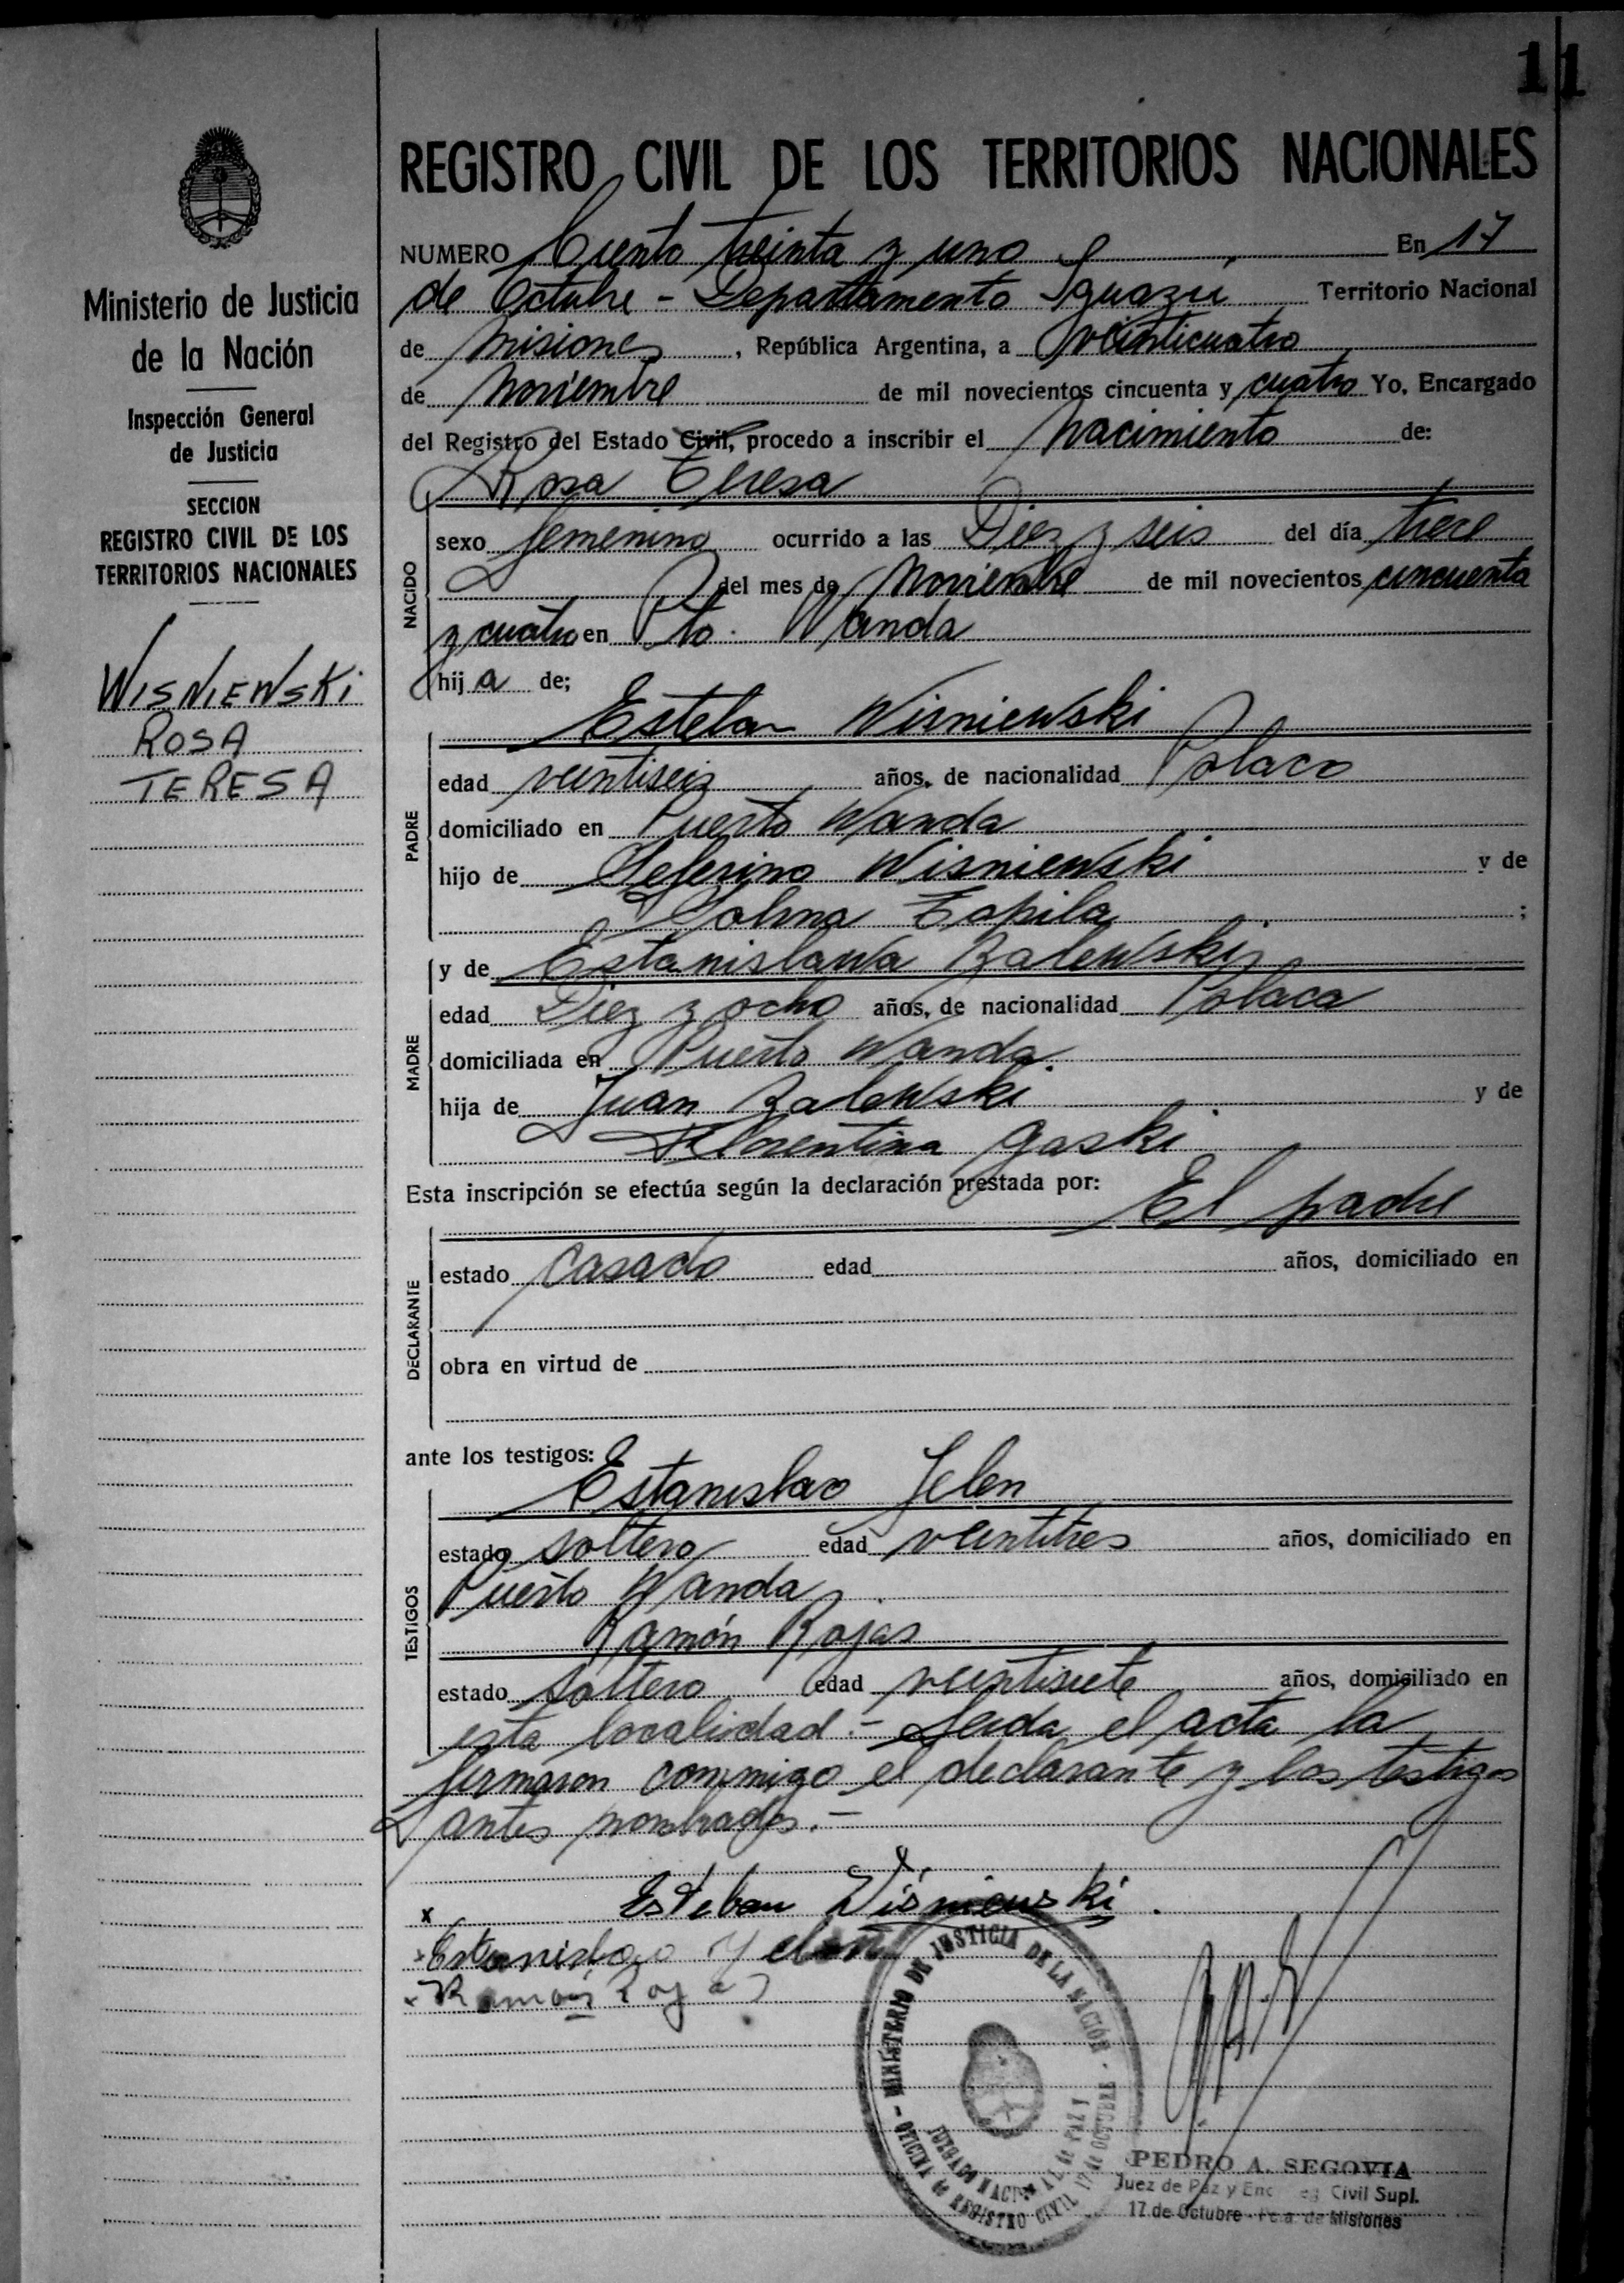 11
Ministerio de Justicia
de la Nación
Inspección General
de Justicia
SECCION
REGISTRO CIVIL DE LOS
TERRITORIOS NACIONALES
WISNIEWSKI
ROSA
TERESA
REGISTRO CIVIL DE LOS TERRITORIOS NACIONALES
NUMERO Ciento treinta y uno En 17
de Octubre - Departamento Iguazú Territorio Nacional
de Misiones, República Argentina, a veinticuatro
de Noviembre de mil novecientos cincuenta y cuatro Yo, Encargado
del Registro del Estado Civil, procedo a inscribir el Nacimiento de:
Rosa Teresa
NACIDO
sexo femenino ocurrido a las Diez y seis del día trece
del mes de Noviembre de mil novecientos cincuenta
y cuatro en Pto. Wanda
hij a de;
Esteban Wisniewski
PADRE
edad veintiseis años, de nacionalidad Polaco
domiciliado en Puerto Wanda
hijo de Seferino Wisniewski y de
;
y de Estanislawa Zalewski
MADRE
edad Diez y ocho años, de nacionalidad Polaca
domiciliada en Puerto Wanda.
hija de Juan Zalewski y de
Florentina Gaski
Esta inscripción se efectúa según la declaración prestada por:
El padre
DECLARANTE
estado casado edad años, domiciliado en
obra en virtud de
ante los testigos:
Estanislao Jelen
TESTIGOS
estado soltero edad veintitres años, domiciliado en
Puerto Wanda
Ramón Rojas
estado soltero edad veintisiete años, domiciliado en
esta localidad.- Leida el acta la
firmaron conmigo el declarante y los testigos
antes nombrados.-
x Esteban Wiśniewski.
x Estanislao Yelen
x Ramón Rojas
MINISTERIO DE JUSTICIA DE LA NACIÓN
JUZGADO NACIONAL de PAZ Y
OFICINA de REGISTRO CIVIL 17 de OCTUBRE
PEDRO A. SEGOVIA
Juez de Paz y Civil Supl.
17 de Octubre - de Misiones